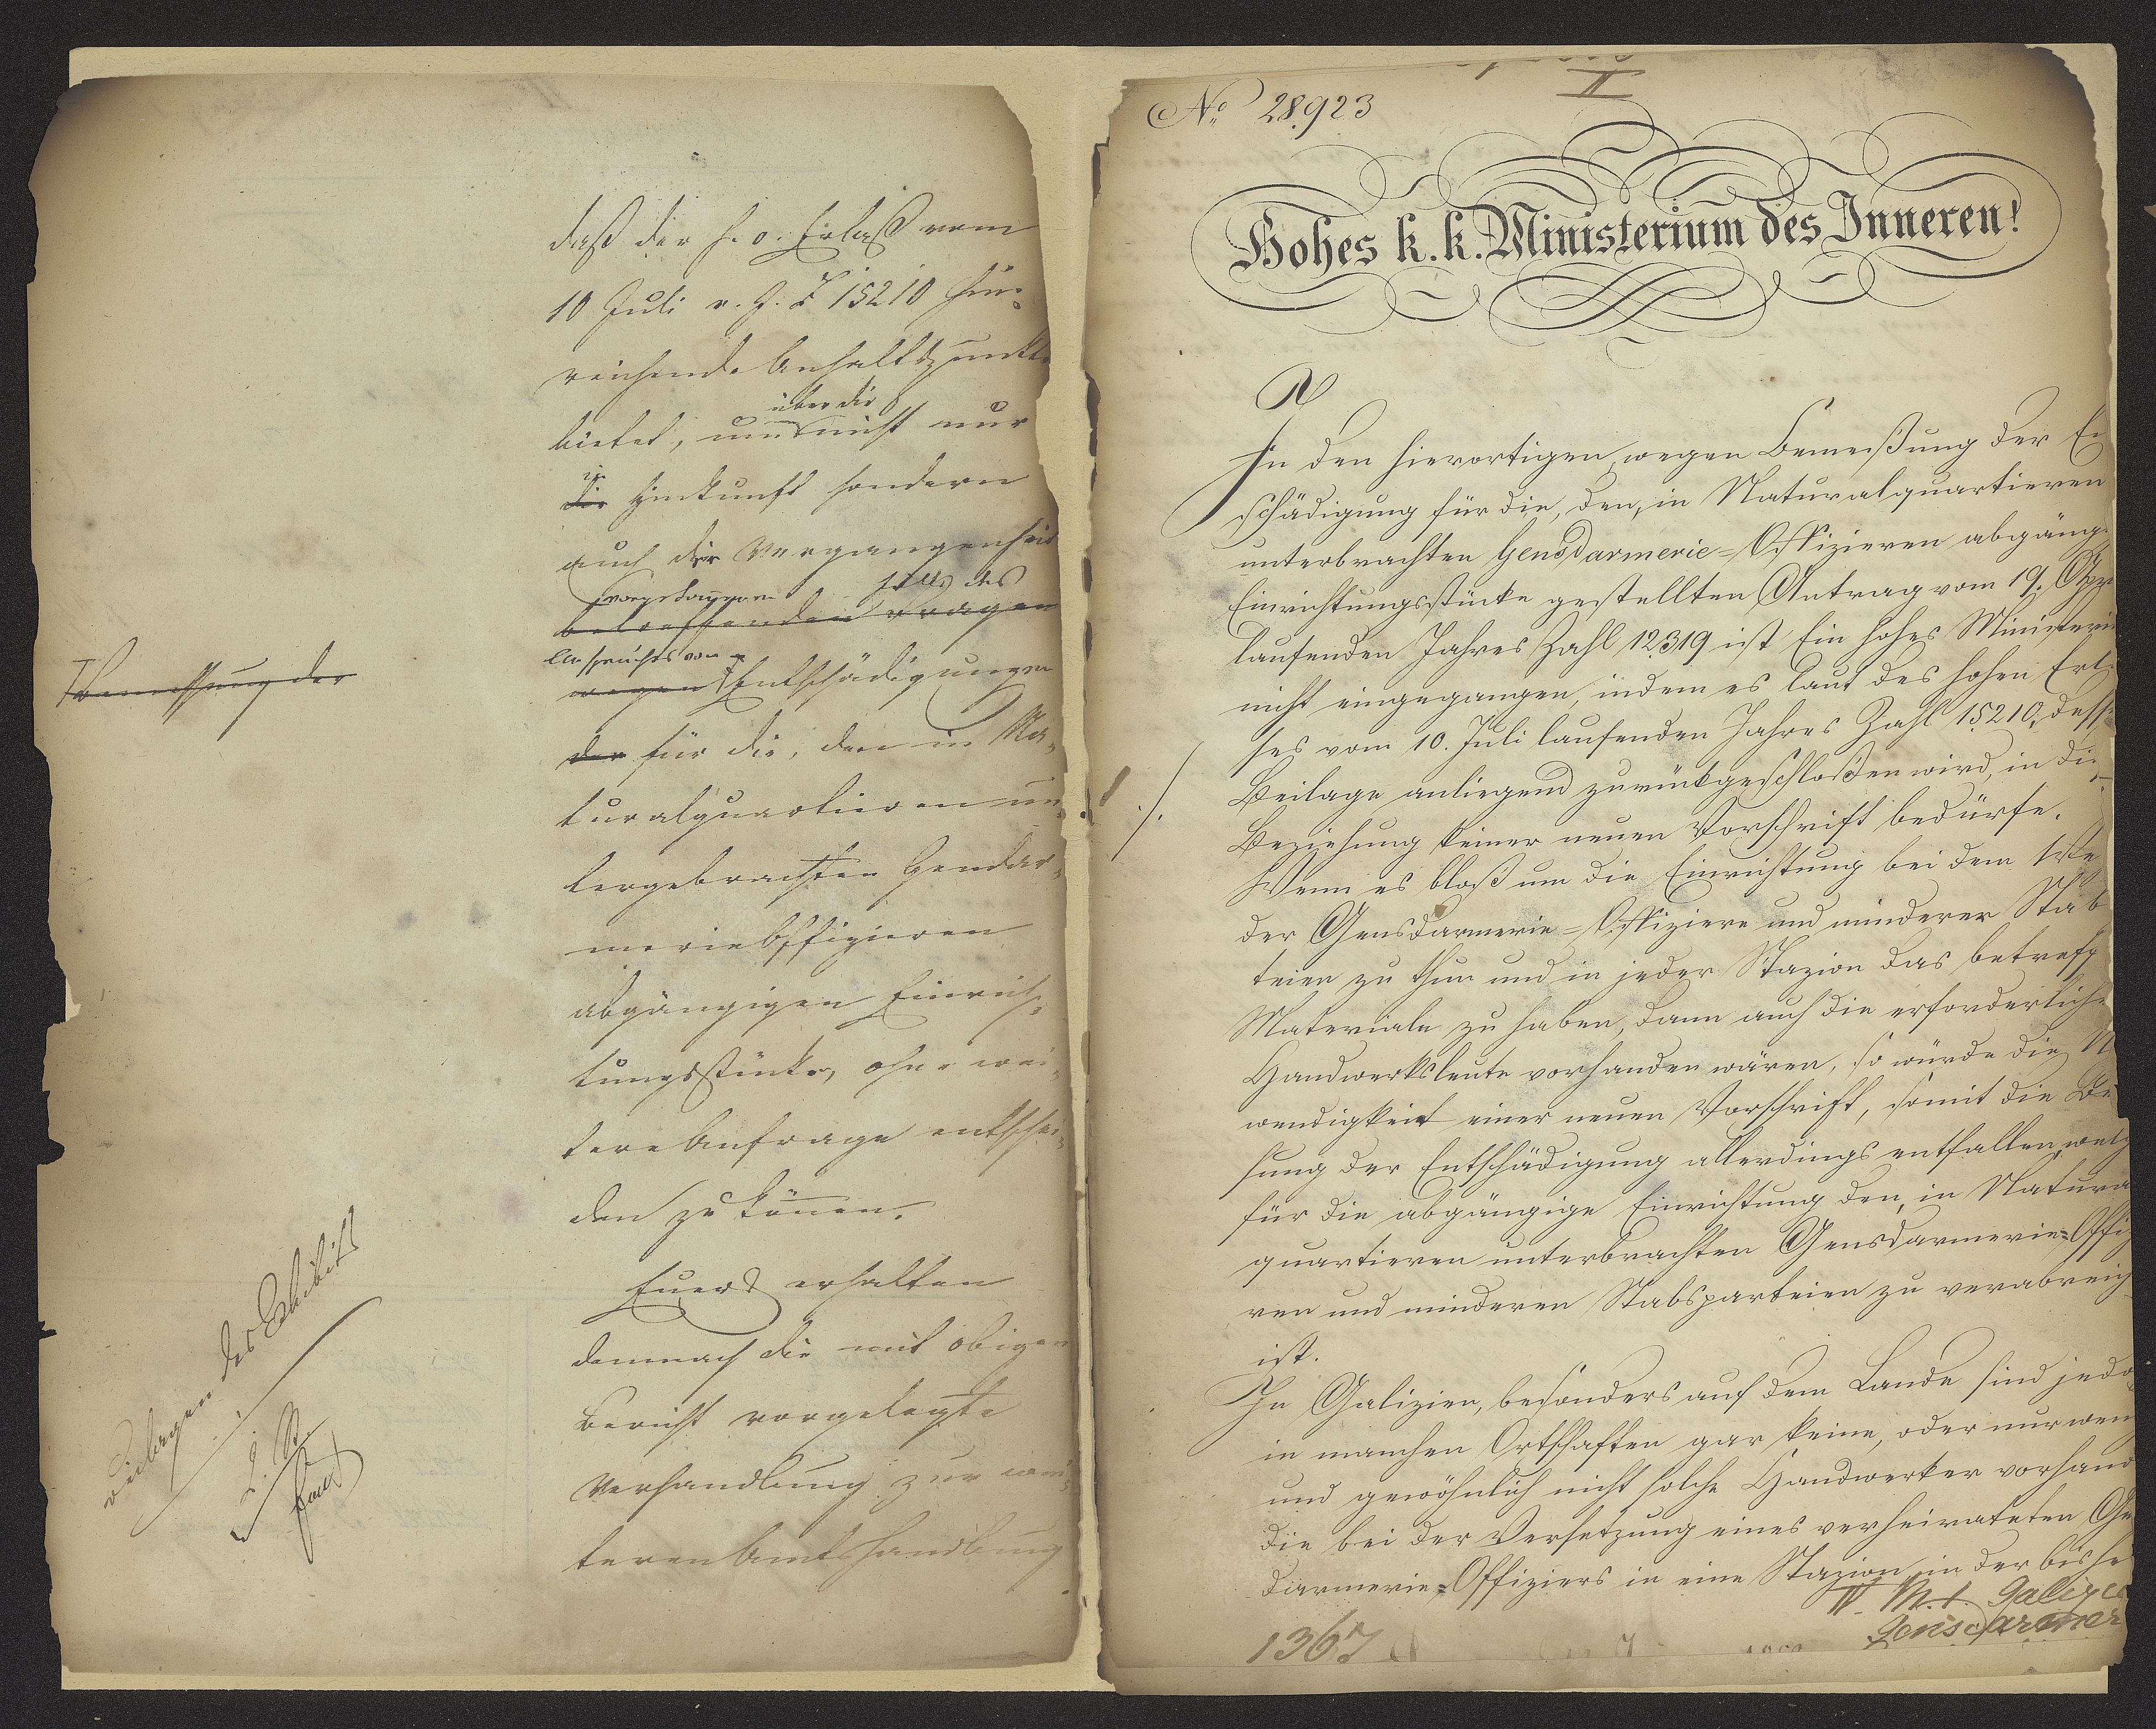 daß der h. o. Erlaß vom
10 Juli v. J. Z 15210 hin-
reichende Anhaltspunkte
bietet, um über die nicht nur
die in Hinkunft sondern
auch der Vergangenheit
vorgekommenen Fälle des
betreffenden Fragen
Anspruches von
wegen Entschädigungen
Bemessung der
der für die, den in Na-
turalquartieren un-
tergebrachten Gendar-
merieoffizieren
abgängigen Einrich-
tungsstücke, ohne wei-
tere Anfrage entschei-
den zu können.
Euer erhalten
demnach die mit obigen
Bericht vorgelegte
Verhandlung zur wei-
teren Amtshandlung
Beilagen des Exhibits
No 28,923
II
Hohes k. k. Ministerium des Inneren!
In den hierortigen, wegen Bemeßung der En
schädigung für die, den, in Naturalquartieren
unterbrachten Gensdarmerie-Offizieren abgäng
Einrichtungsstücke gestellten Antrag vom 19. Apr
laufenden Jahres Zahl 12,319 ist Ein hohes Ministeriu
nicht eingegangen, indem es laut des hohen Erla
ses vom 10. Juli laufenden Jahres Zahl 15210, desse
Beilage anliegend zurückgeschloßen wird, in die
./.
Beziehung keiner neuen Vorschrift bedürfe.
Wenn es bloß um die Einrichtung bei dem We
der Gensdarmerie-Offiziere und minderer Stab
teien zu thun und in jeder Stazion das betreff
Materiale zu haben, dann auch die erforderliche
Handwerksleute vorhanden wären, so würde die N
wendigkeit einer neuen Vorschrift, somit die Be
sung der Entschädigung allerdings entfallen, welch
für die abgängige Einrichtung den, in Natura
quartieren unterbrachten Gensdarmerie-Offiz
ren und minderen Stabsparteien zu verabreich
ist.
In Galizien, besonders auf dem Lande sind jedo
in manchen Ortschaften gar keine, oder nur wen
und gewöhnlich nicht solche Handwerker vorhand
die bei der Versetzung eines verheirateten Ge
darmerie-Offiziers in eine Stazion, in der bishe
IV. M. I. Galizie
Gensdarmer
1367